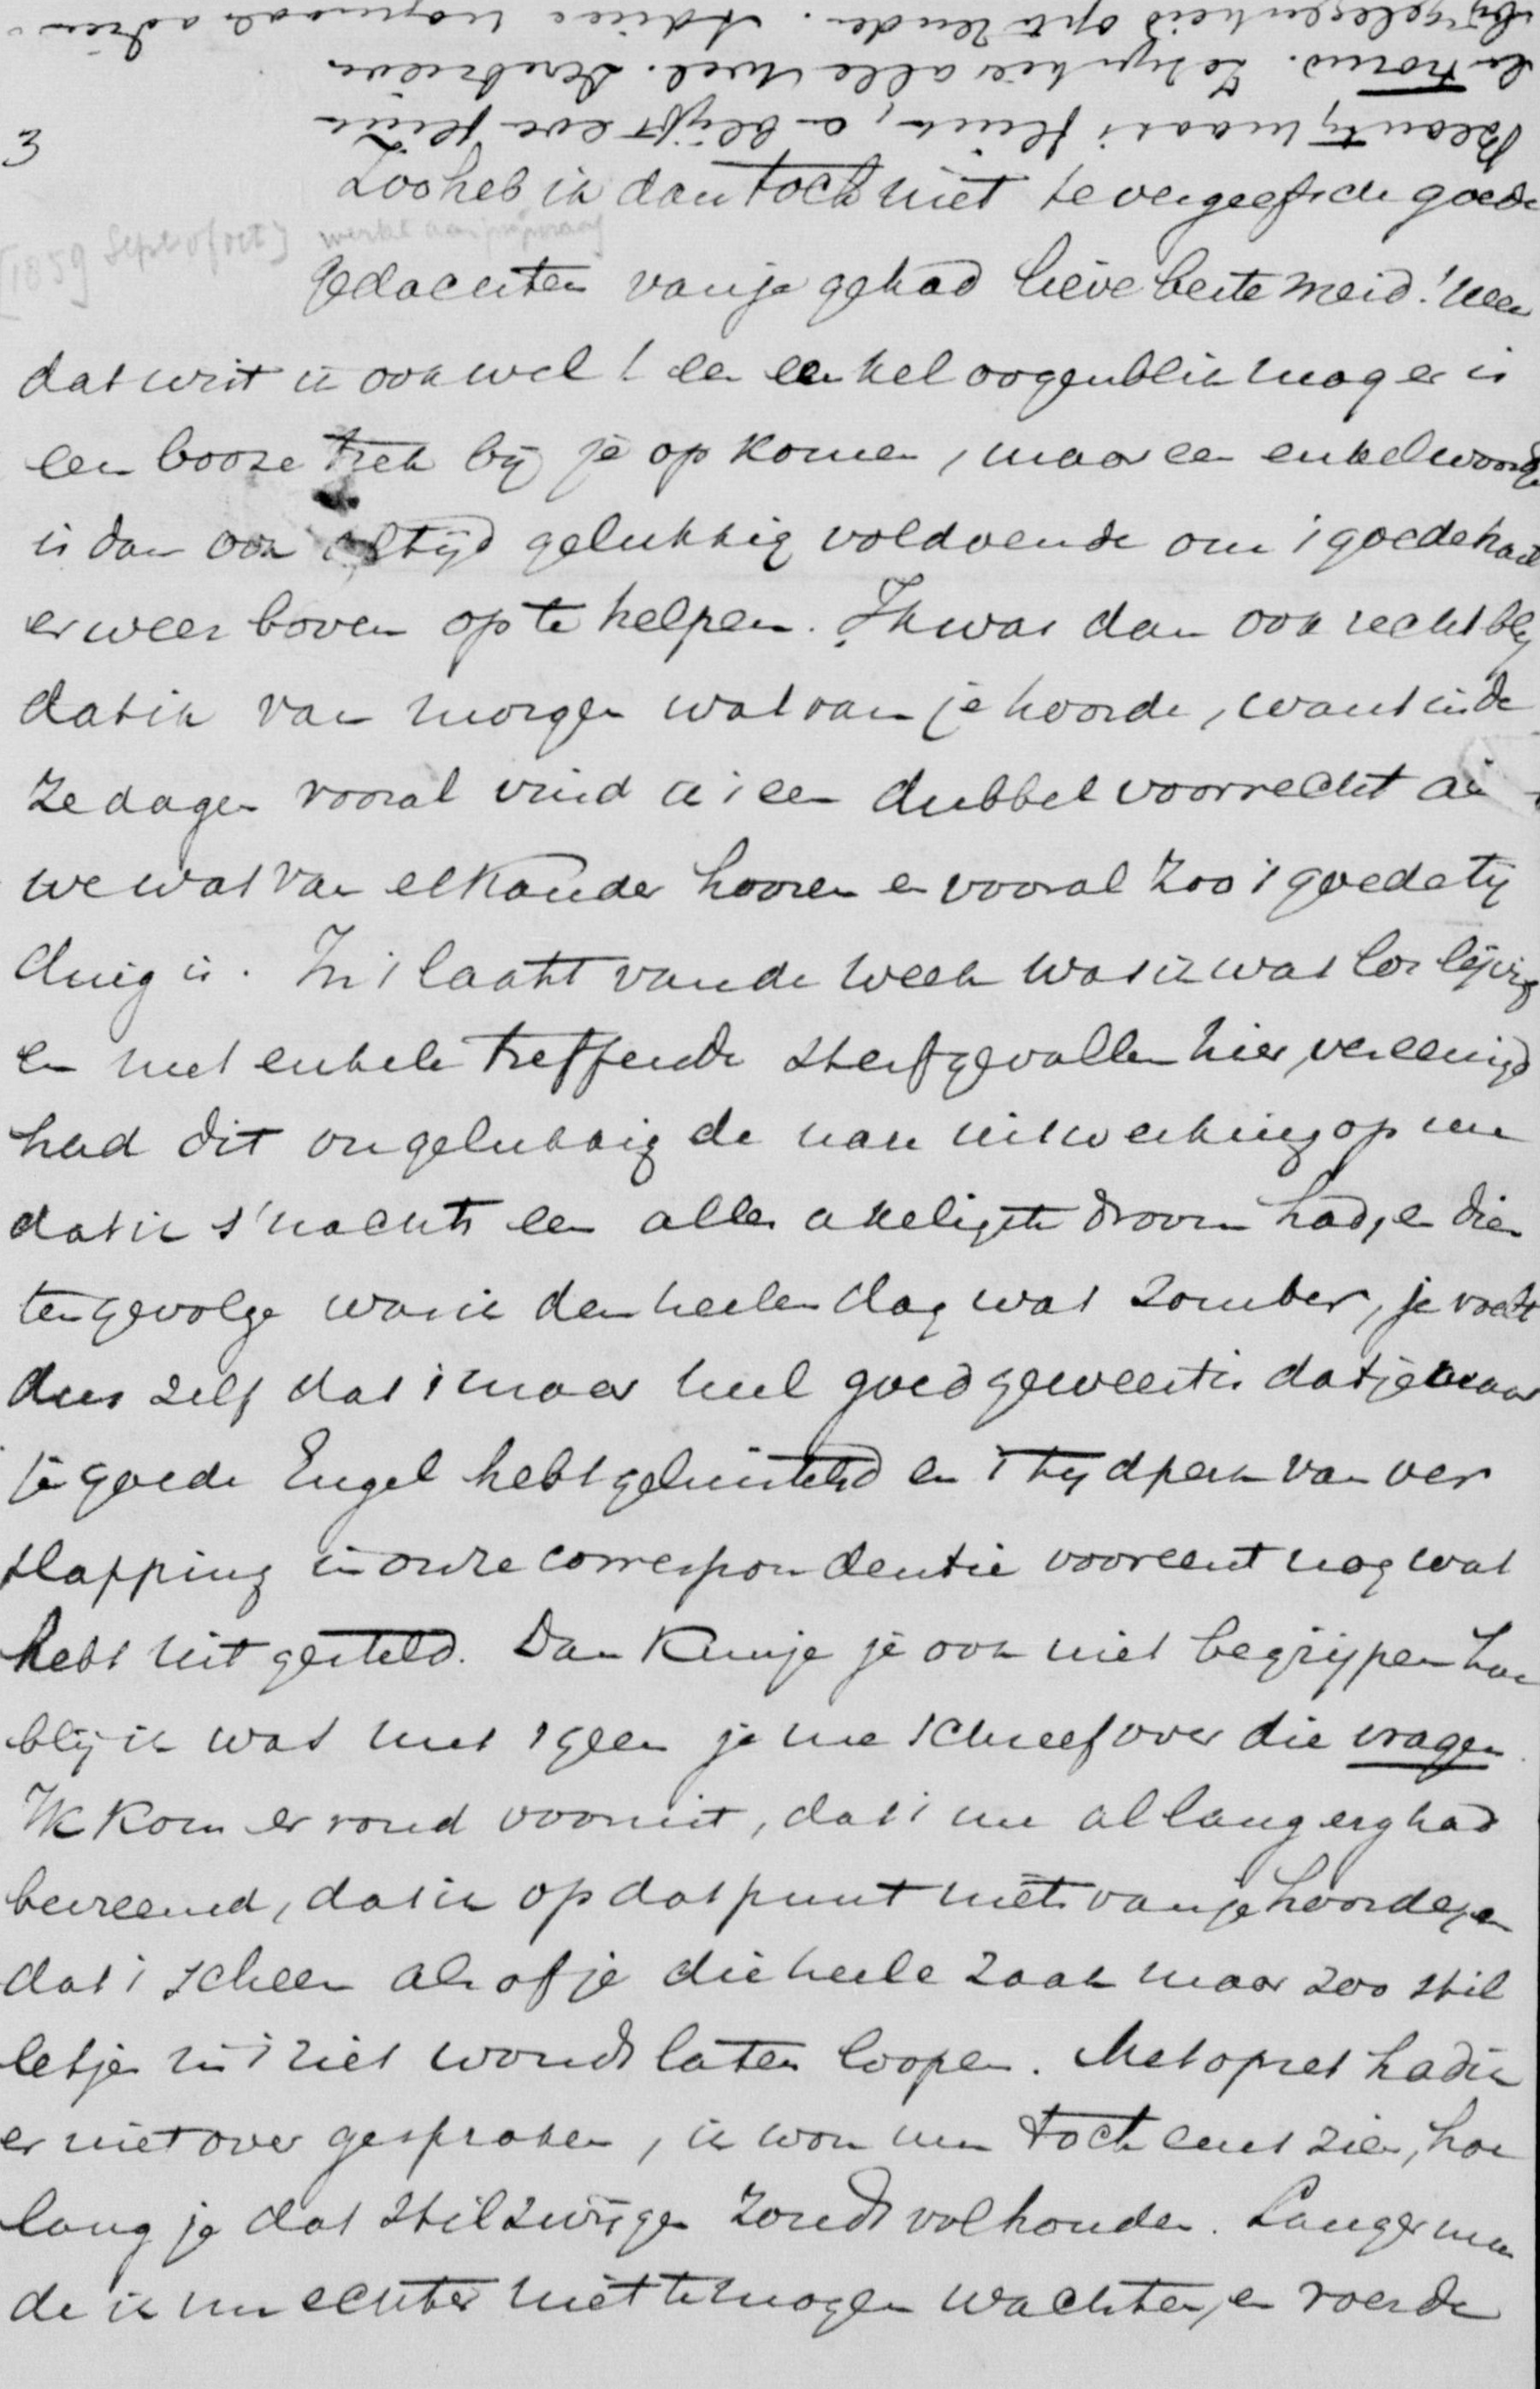 bij gelegenheid op te zenden. Adieu nogmaals adieu
en trouw. Zeker hier alle wel.
maar flink, en blijft even flink
3
Zoo heb ik dan toch niet te vergeefs de goede
[1859 Sept of oct]
gedachten van je gehad lieve beste meid! neen
dat wist ik ook wel! een enkel oogenblik mag er is
een booze trek bij je op komen, maar een enkel woordje
is dan ook altijd gelukkig voldoende om 't goede hart
er weer boven op te helpen. Ik was dan ook recht blij
dat ik van morgen wat van je hoorde, want in de
ze dagen vooral vind ik 't een dubbel voorrecht als
we wat van elkander hooren en vooral zoo 't goede tij
ding is. In 't laatst van de week was ik wat los lijvig
en met enkele treffende sterfgevallen hier, vereenigd
had dit ongelukkig de nare uitwerking op me
dat ik s'nachts een aller akeligste droom had, en dien
tengevolge was ik den heelen dag wat somber, je voelt
dus zelf dat 't maar heel goed geweest is dat je maar
je goede Engel hebt geluisterd en 't tijdperk van ver
slapping in onze correspondentie vooreerst nog wat
hebt uitgesteld. Dan kun je je ook niet begrijpen hoe
blij ik was met 't geen je me schreef over die vragen.
Ik kom er rond vooruit, dat 't me al lang erg had
bevreemd, dat ik op dat punt niets van je hoorde, en
dat 't scheen als of je die heele zaak maar zoo stil
letjes in 't riet woudt laten loopen. Met opzet had ik
er niet over gesproken, ik wou nu toch eens zien, hoe
lang je dat stilzwijgen zoudt volhouden. Langer meen
de ik nu echter niet te mogen wachten, en roerde